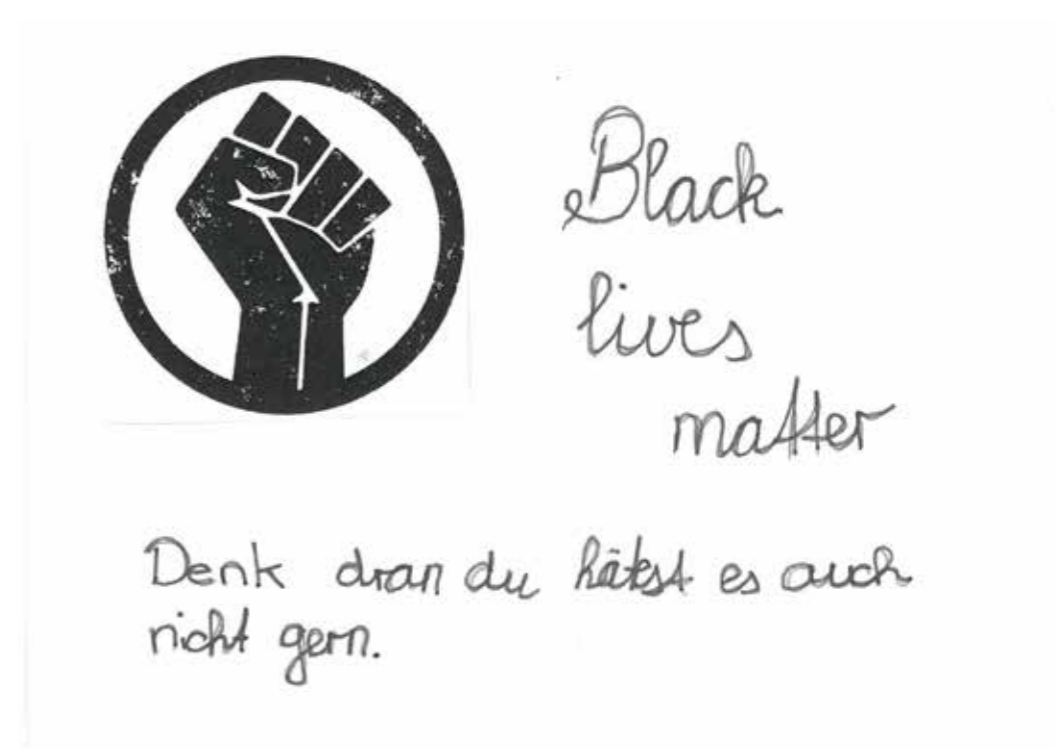 Black
lives
matter
Denk dran du hätest es auch
nicht gern.